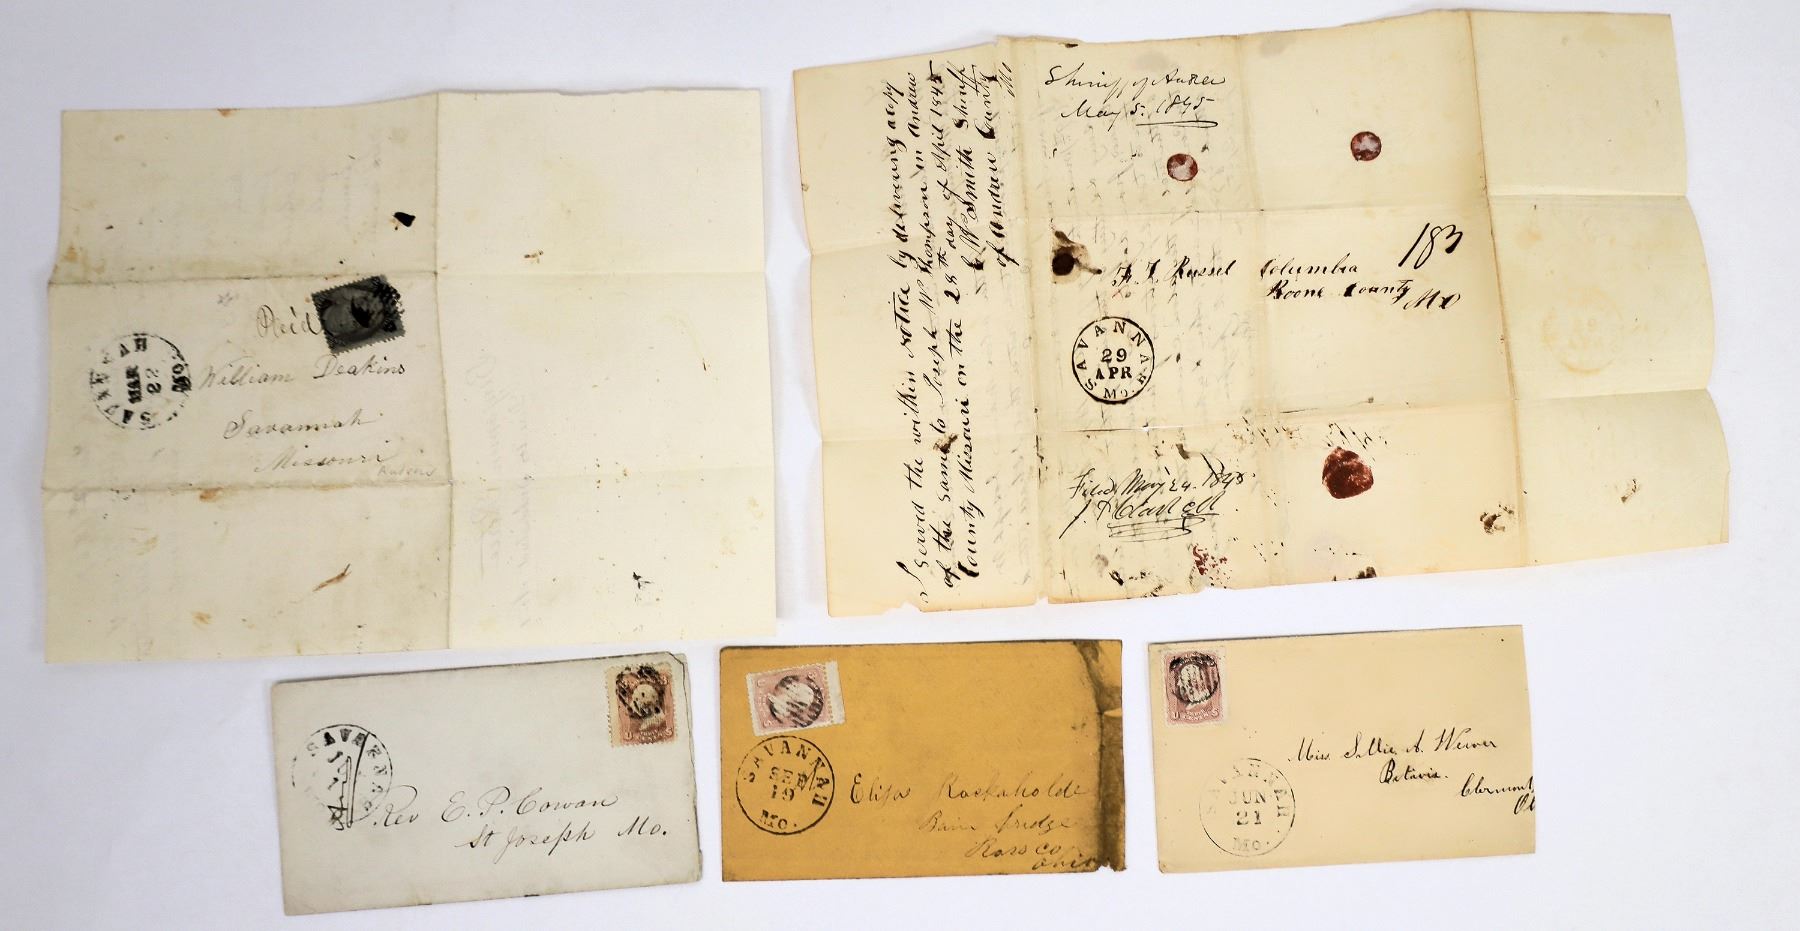 Paid
SAVANNAH
MAR
22
MO.
William Deakins
Savannah
Missouri
Served the within Notice by delivering a copy
of the same to Joseph W Thompson in Andrew
County Missouri on the 28th day of April 1845
Wm Smith Sheriff
of Andrew County
Mo
May 5. 1845
183
F. T. Russel Columbia
Boone County
Mo
SAVANNAH
29
APR
Mo.
Filed May 24. 1845
SAVANNAH
Rev E. P. Cowan
St Joseph Mo.
SAVANNAH
SEP
19
MO.
Eliza
Bain bridge
Ross co
Ohio
U S
Miss Sallie A. Weaver
Batavia.
Clermont
SAVANNAH
JUN
21
MO.